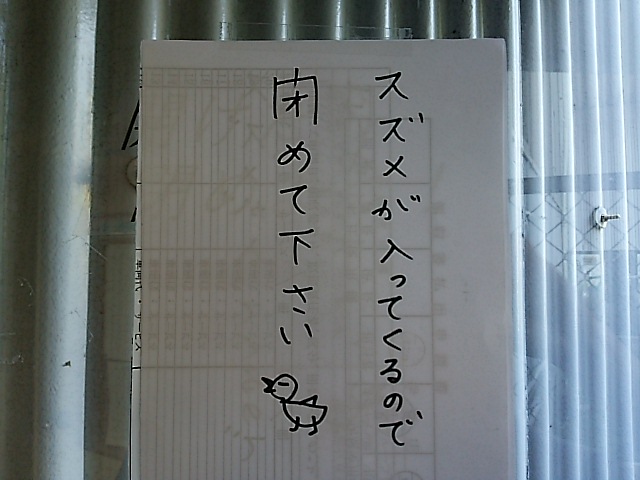 スズメが入ってくるので
閉めて下さい